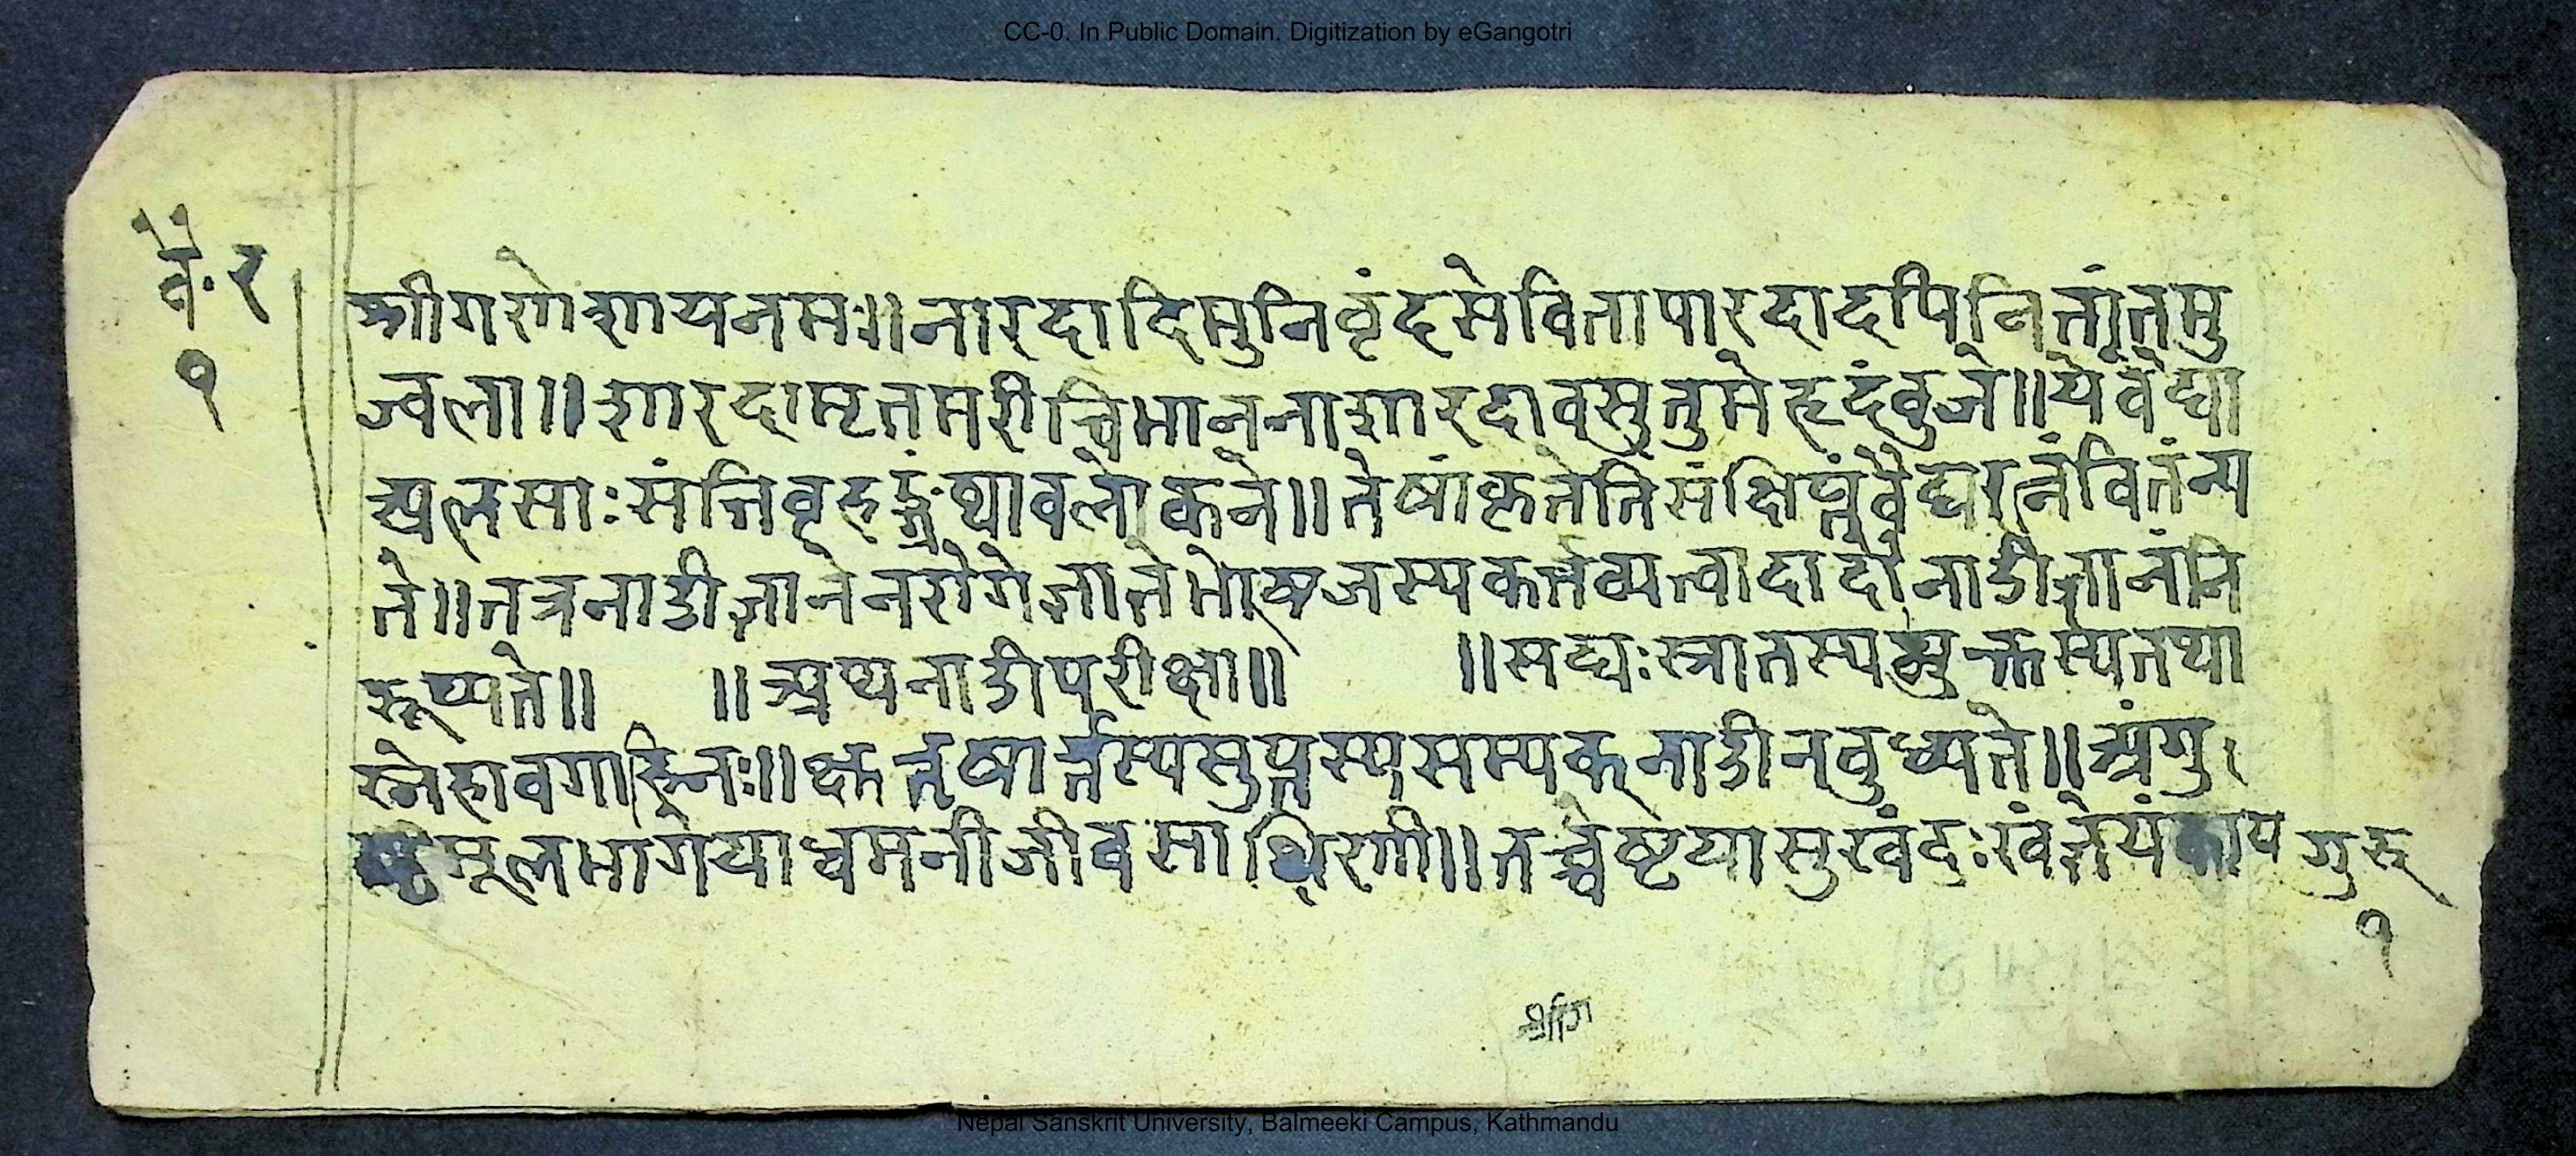 CC-0. In Public Domain. Digitization by eGangotri
वै. र
१
श्रीगणेशायनमः॥नारदादिमुनिवृंदसेवितापारदादपिनितांतमु
ज्वला॥शारदामृतमरीचिमाननाशारदावसुतुमेहृदंवुजे॥येवैद्या
अलसाःसंतिवृहद्ग्रंथावलोकने॥तेषांकृतेतिसंक्षिप्तंवैद्यरत्नंवितंन्य
ते॥तत्रनाडीज्ञानेनरोगेज्ञातेभेषजस्यकर्त्तव्यत्वादादौनाडीज्ञानंनि
रूप्यते॥ ॥अथनाडीपरीक्षा॥ ॥सद्यःस्नातस्यभुक्तस्यतथा
स्नेहावगाहिनः॥क्षुत्तृषार्त्तस्यसुप्तस्यसम्यक्नाडीनवुध्यते॥अंगु
ष्ठमूलभागेयाधमनीजीवसाक्षिणी॥तच्चेष्टयासुखंदुःखंज्ञेयंकाय
गुरु
१
CC-0. Nepal Sanskrit University, Balmeeki Campus, Kathmandu